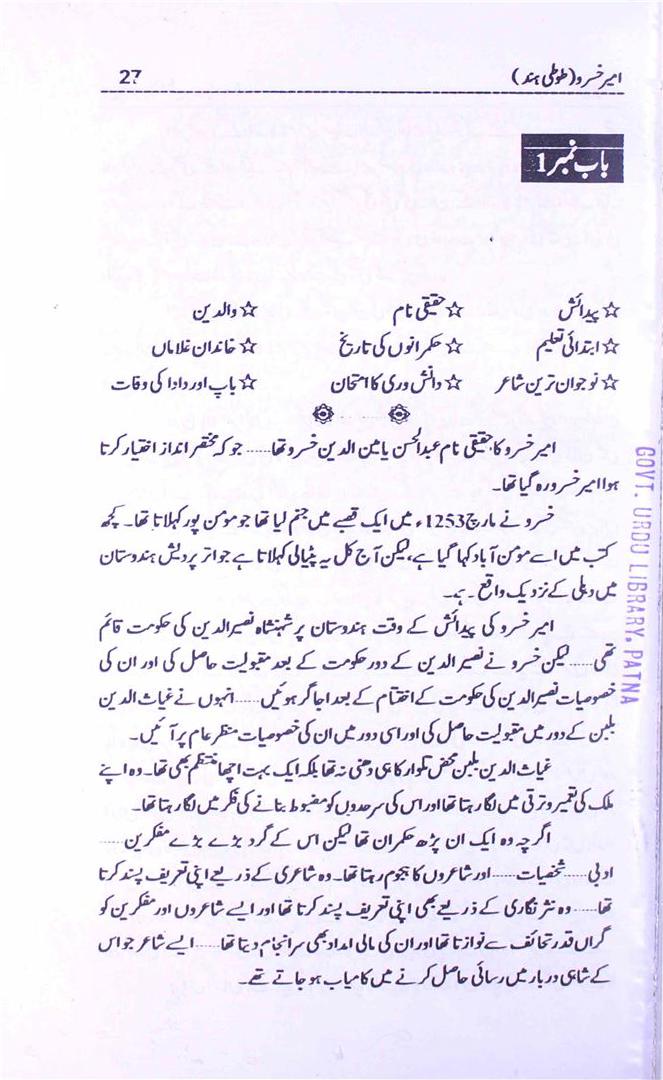 امیر خسرو (طوطی ہند) 27
باب نمبر 1
☆ پیدائش ☆ حقیقی نام ☆ والدین
☆ ابتدائی تعلیم ☆ حکمرانوں کی تاریخ ☆ خاندان غلاماں
☆ نوجوان ترین شاعر ☆ دانش وری کا امتحان ☆ باپ اور دادا کی وفات
امیر خسرو کا حقیقی نام عبدالحسن یامین الدین خسرو تھا...... جو کہ مختصر انداز اختیار کرتا
ہوا امیر خسرو رہ گیا تھا۔
خسرو نے مارچ 1253ء میں ایک قصبے میں جنم لیا تھا جو مومن پور کہلاتا تھا۔ کچھ
کتب میں اسے مومن آباد کہا گیا ہے، لیکن آج کل یہ پٹیالی کہلاتا ہے جو اتر پردیش ہندوستان
میں دہلی کے نزدیک واقع ہے۔
امیر خسرو کی پیدائش کے وقت ہندوستان پر شہنشاہ نصیر الدین کی حکومت قائم
تھی...... لیکن خسرو نے نصیر الدین کے دور حکومت کے بعد مقبولیت حاصل کی اور ان کی
خصوصیات نصیر الدین کی حکومت کے اختتام کے بعد اجاگر ہوئیں...... انہوں نے غیاث الدین
بلبن کے دور میں مقبولیت حاصل کی اور اسی دور میں ان کی خصوصیات منظر عام پر آئیں۔
غیاث الدین بلبن محض تلوار کا ہی دھنی نہ تھا بلکہ ایک بہت اچھا منتظم بھی تھا۔ وہ اپنے
ملک کی تعمیر و ترقی میں لگا رہتا تھا اور اس کی سرحدوں کو مضبوط بنانے کی فکر میں لگا رہتا تھا۔
اگرچہ وہ ایک ان پڑھ حکمران تھا لیکن اس کے گرد بڑے بڑے مفکرین......
ادبی...... شخصیات...... اور شاعروں کا ہجوم رہتا تھا۔ وہ شاعری کے ذریعے اپنی تعریف پسند کرتا
تھا...... وہ نثر نگاری کے ذریعے بھی اپنی تعریف پسند کرتا تھا اور ایسے شاعروں اور مفکرین کو
گراں قدر تحائف سے نوازتا تھا اور ان کی مالی امداد بھی سرانجام دیتا تھا...... ایسے شاعر جو اس
کے شاہی دربار میں رسائی حاصل کرنے میں کامیاب ہو جاتے تھے۔
GOVT. URDU LIBRARY, PATNA